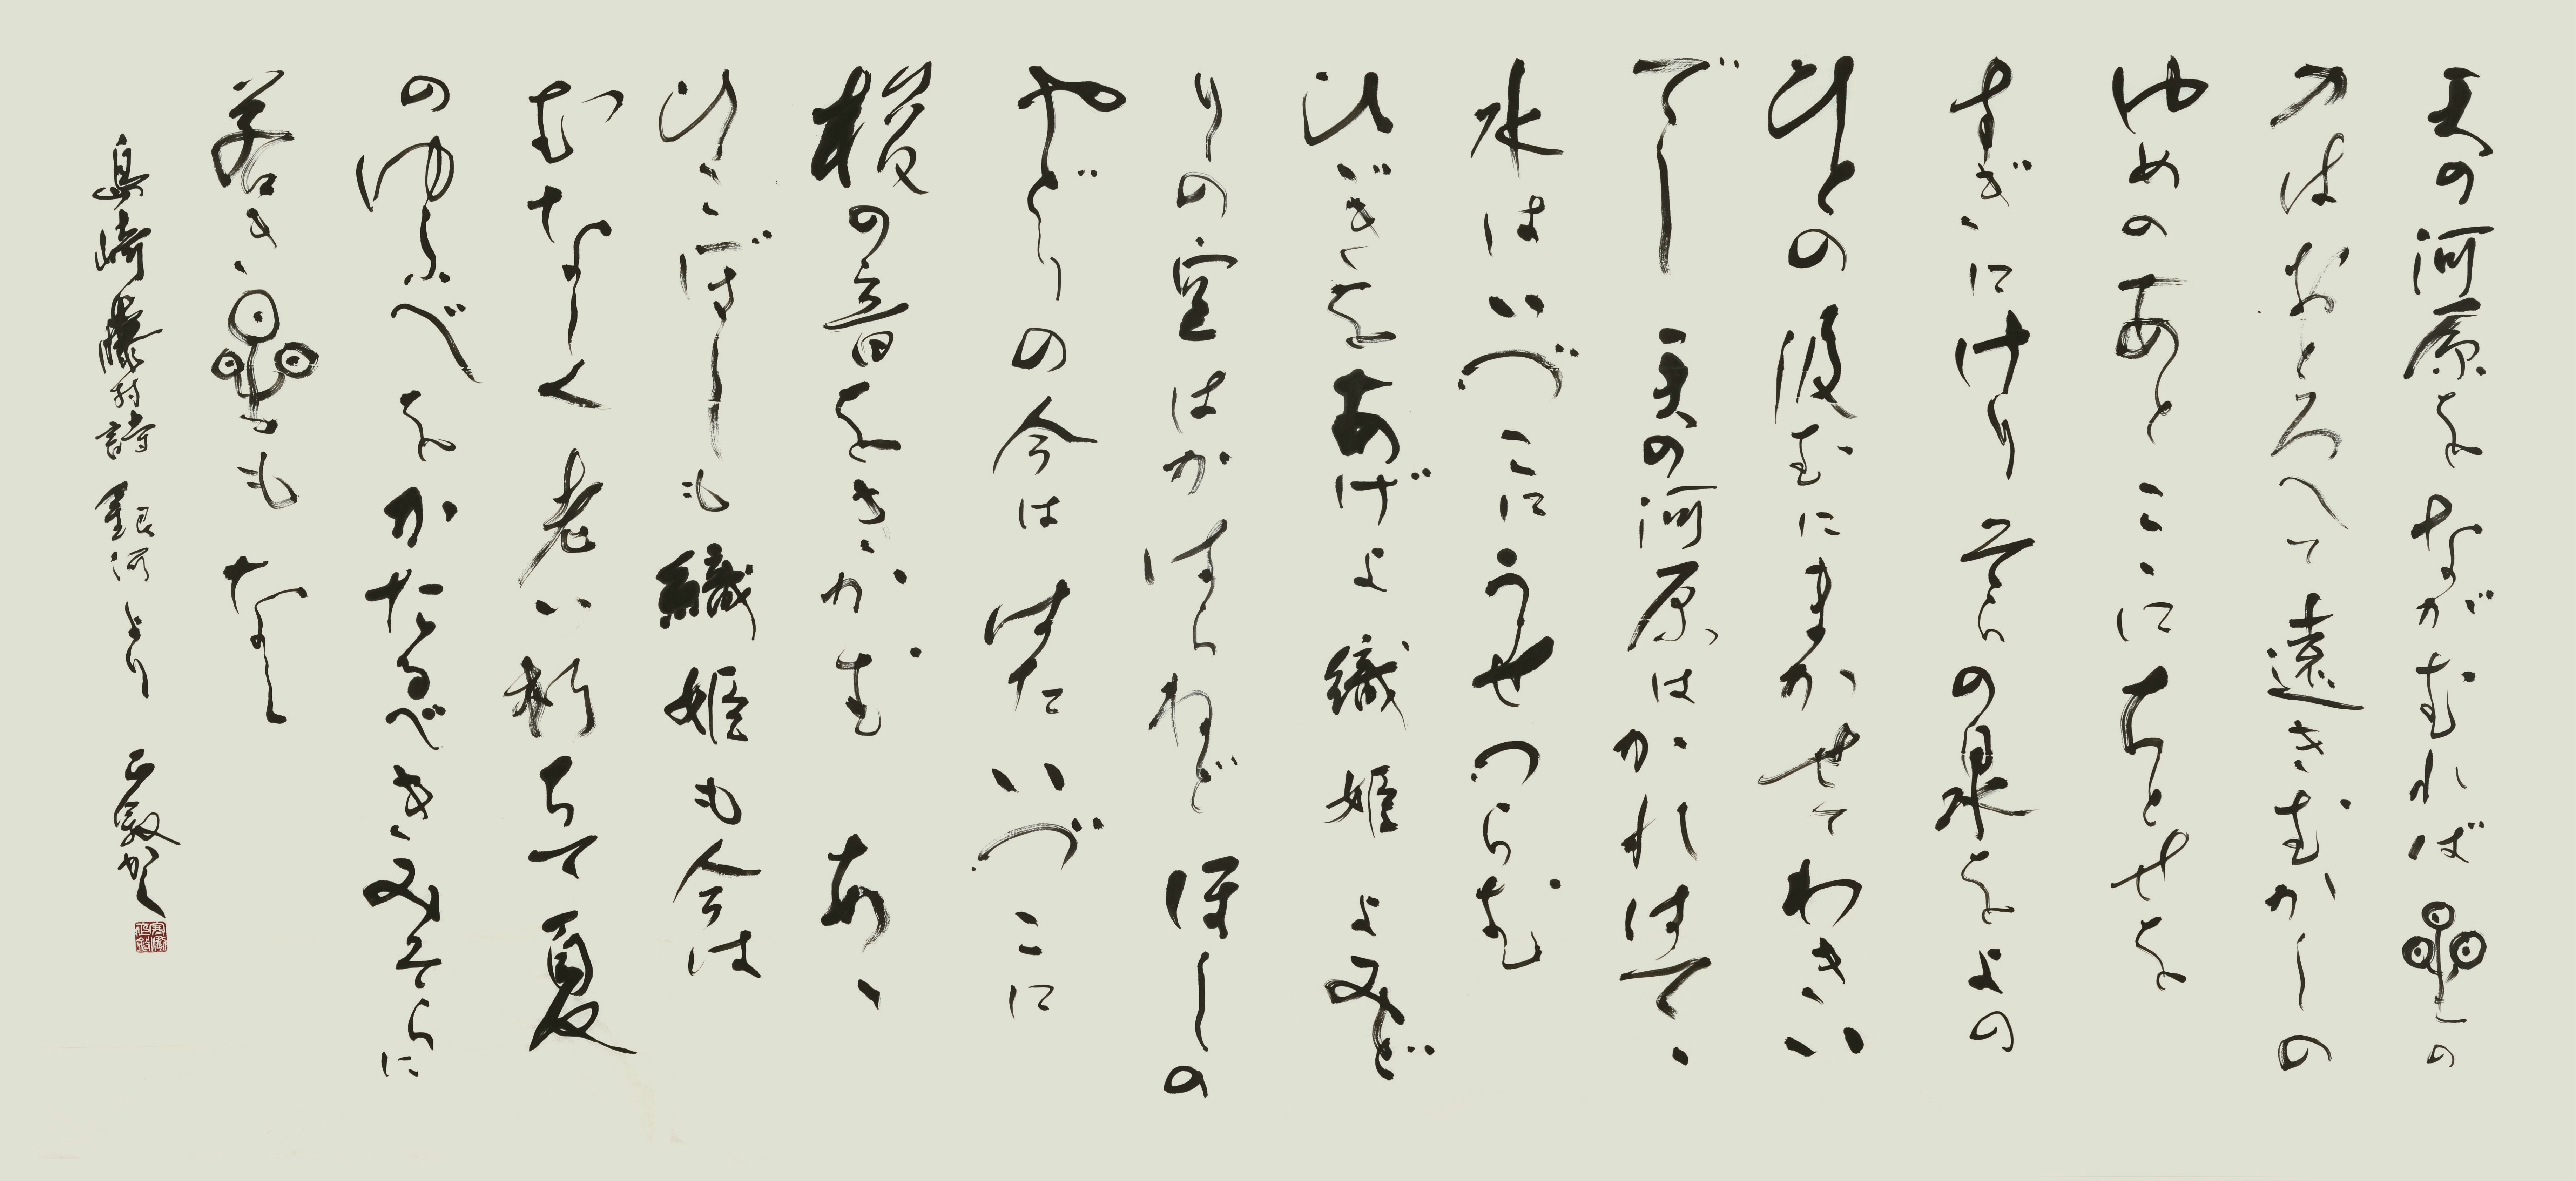 天の河原をながむれば星の
力はおとろへて遠きむかしの
ゆめのあとここにちとせを
すぎにけりそらの泉をよの
ひとの汲むにまかせてわきい
でし天の河原はかれはてゝ
水はいづこにうせつらむ
ひゞきをあげよ織姫よみど
りの空はかはらねどほしの
やどりの今はたいづこに
梭の音をきかむあゝ
ひこぼしも織姫も今は
むなしく老い朽ちて夏
のゆふべをかたるべきみそらに
若き星もなし
島崎藤村詩 銀河より